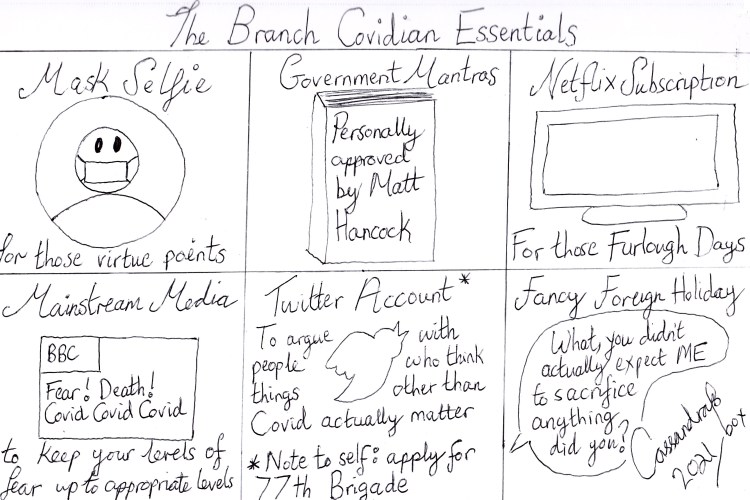 The Branch Covidian Essentials
Mask Selfie
for those virtue points
Government Mantras
Personally
approved
by Matt
Hancock
Netflix Subscription
For those Furlough Days
Mainstream Media
BBC
Fear! Death!
Covid Covid Covid
to keep your levels of
fear up to appropriate levels
Twitter Account*
To argue with
people who think
things other than
Covid actually matter
*Note to self: apply for
77th Brigade
Fancy Foreign Holiday
What, you didn't
actually expect ME
to sacrifice
anything,
did you?
2021